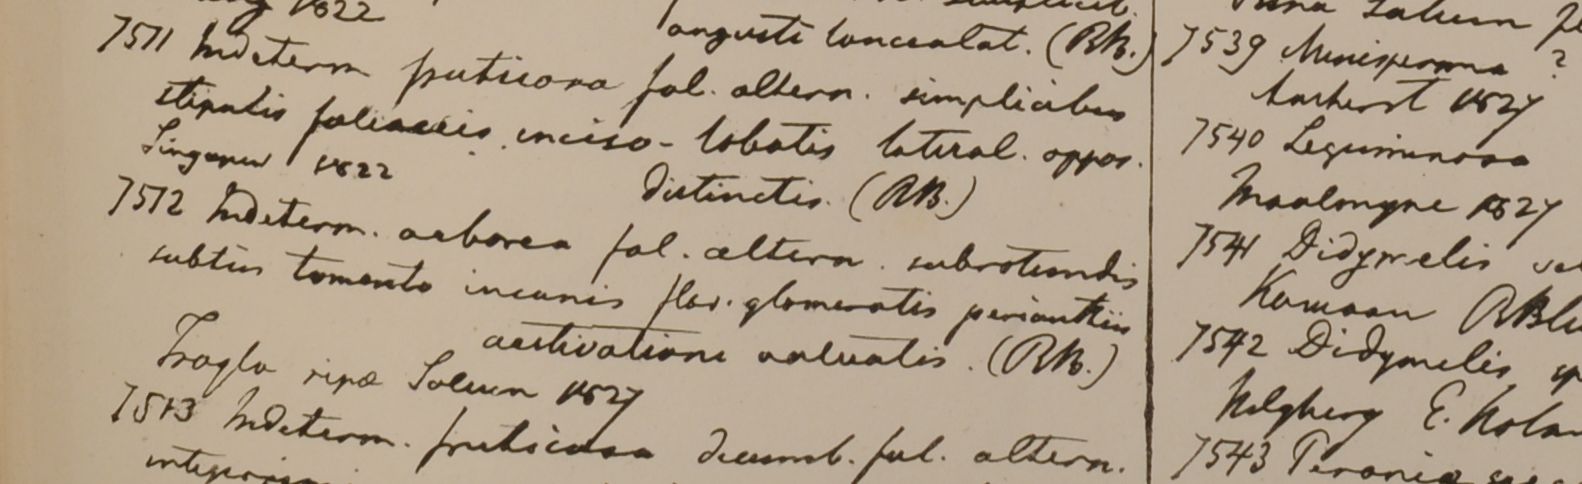 1822
angusti lanceolat. (RB.)
7511 Indeterm fruticosa fol. altern. simplicibus
stipulis foliaceis inciso-lobatis lateral. oppos.
Singapur 1822 distinctis. (RB.)
7512 Indeterm. arborea fol. altern. subrotundis
subtus tomento incanis flor. glomeratis perianthiis
aestivatione valvatis. (RB.)
Trogla ripæ Saluen 1827
7513 Indeterm. fruticosa decumb. fol. altern.
Saluen
7539 Menisperma ?
Amherst 1827
7540 Leguminosa
Moalmyne 1827
7541 Didymelis
Kamaon RBl
7542 Didymelis sp
Nilghery E.
7543